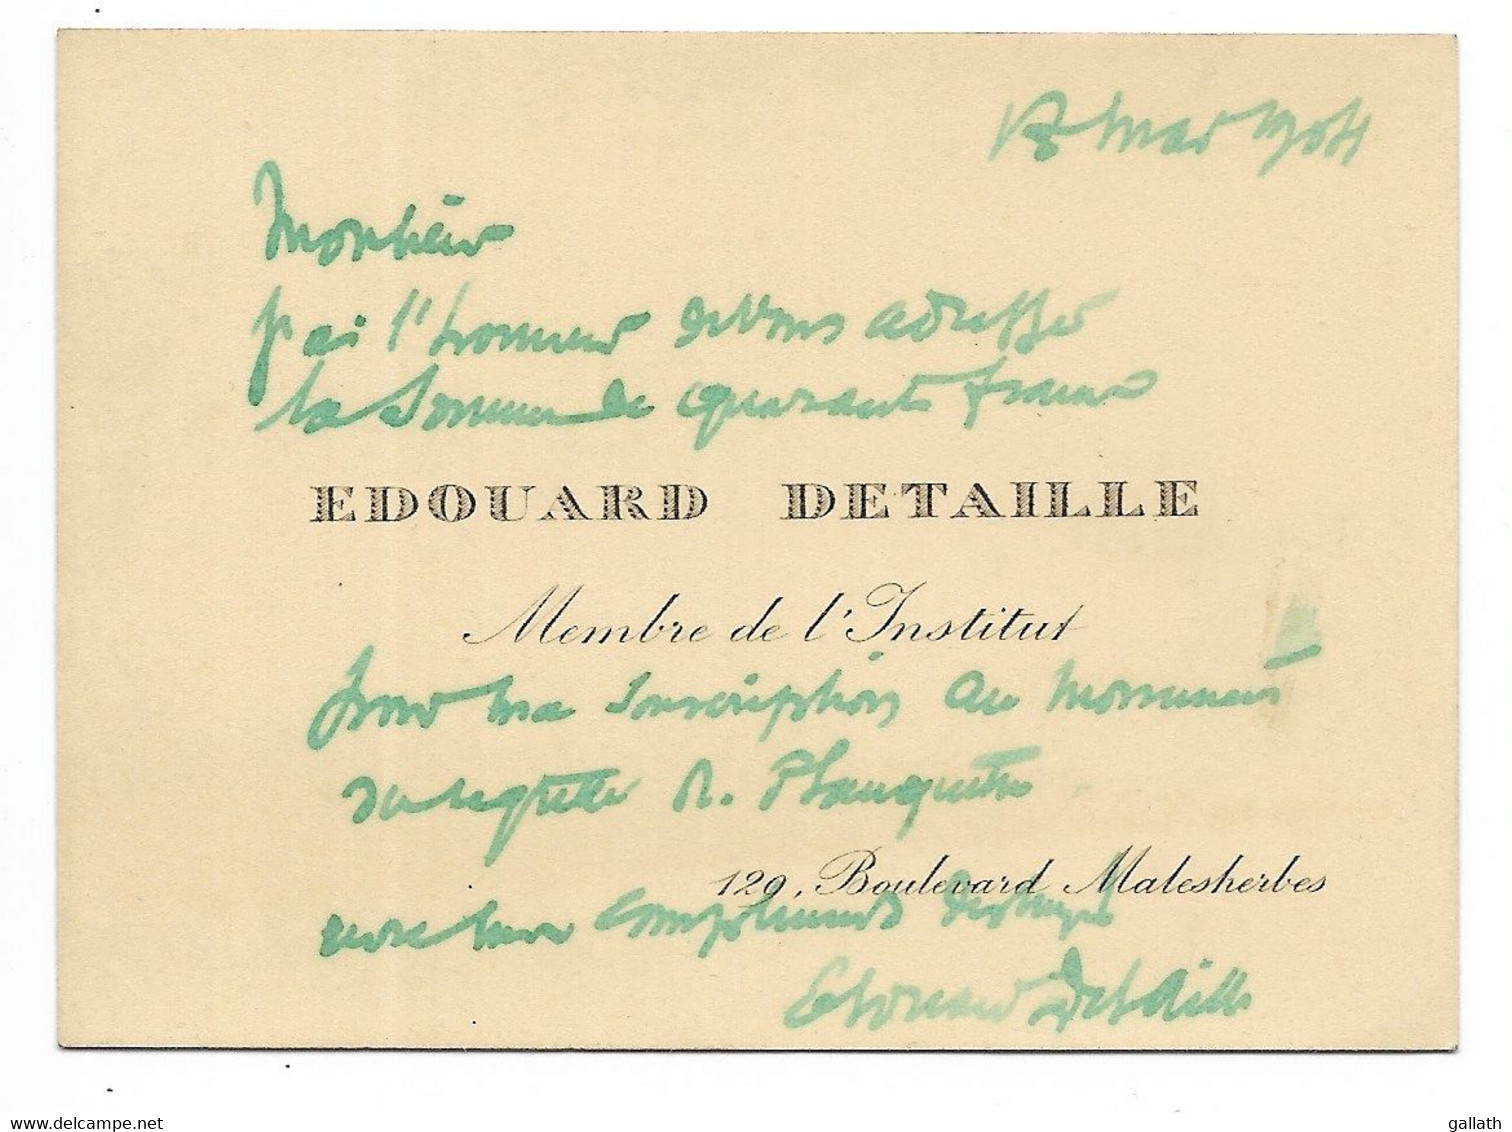 mars 1904
Monsieur
j'ai l'honneur de vous adresser
la somme de quarante francs
EDOUARD DETAILLE
Membre de l'Institut
pour ma souscription au monument
du regretté R. Planquette
129, Boulevard Malesherbes
avec mes compliments distingués
Edouard Detaille
www.delcampe.net
gallath